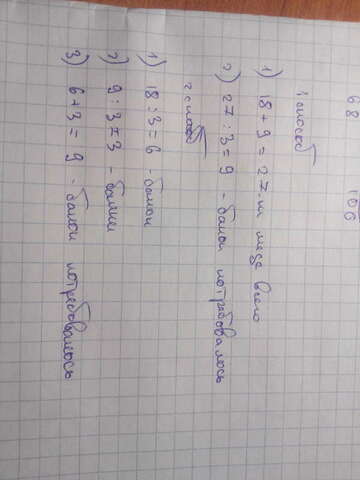 68 106
1 способ
1) 18 + 9 = 27 м меда всего
2) 27 : 3 = 9 - банок потребовалось
2 способ
1) 18 : 3 = 6 - банок
2) 9 : 3 = 3 - банки
3) 6 + 3 = 9 - банок потребовалось